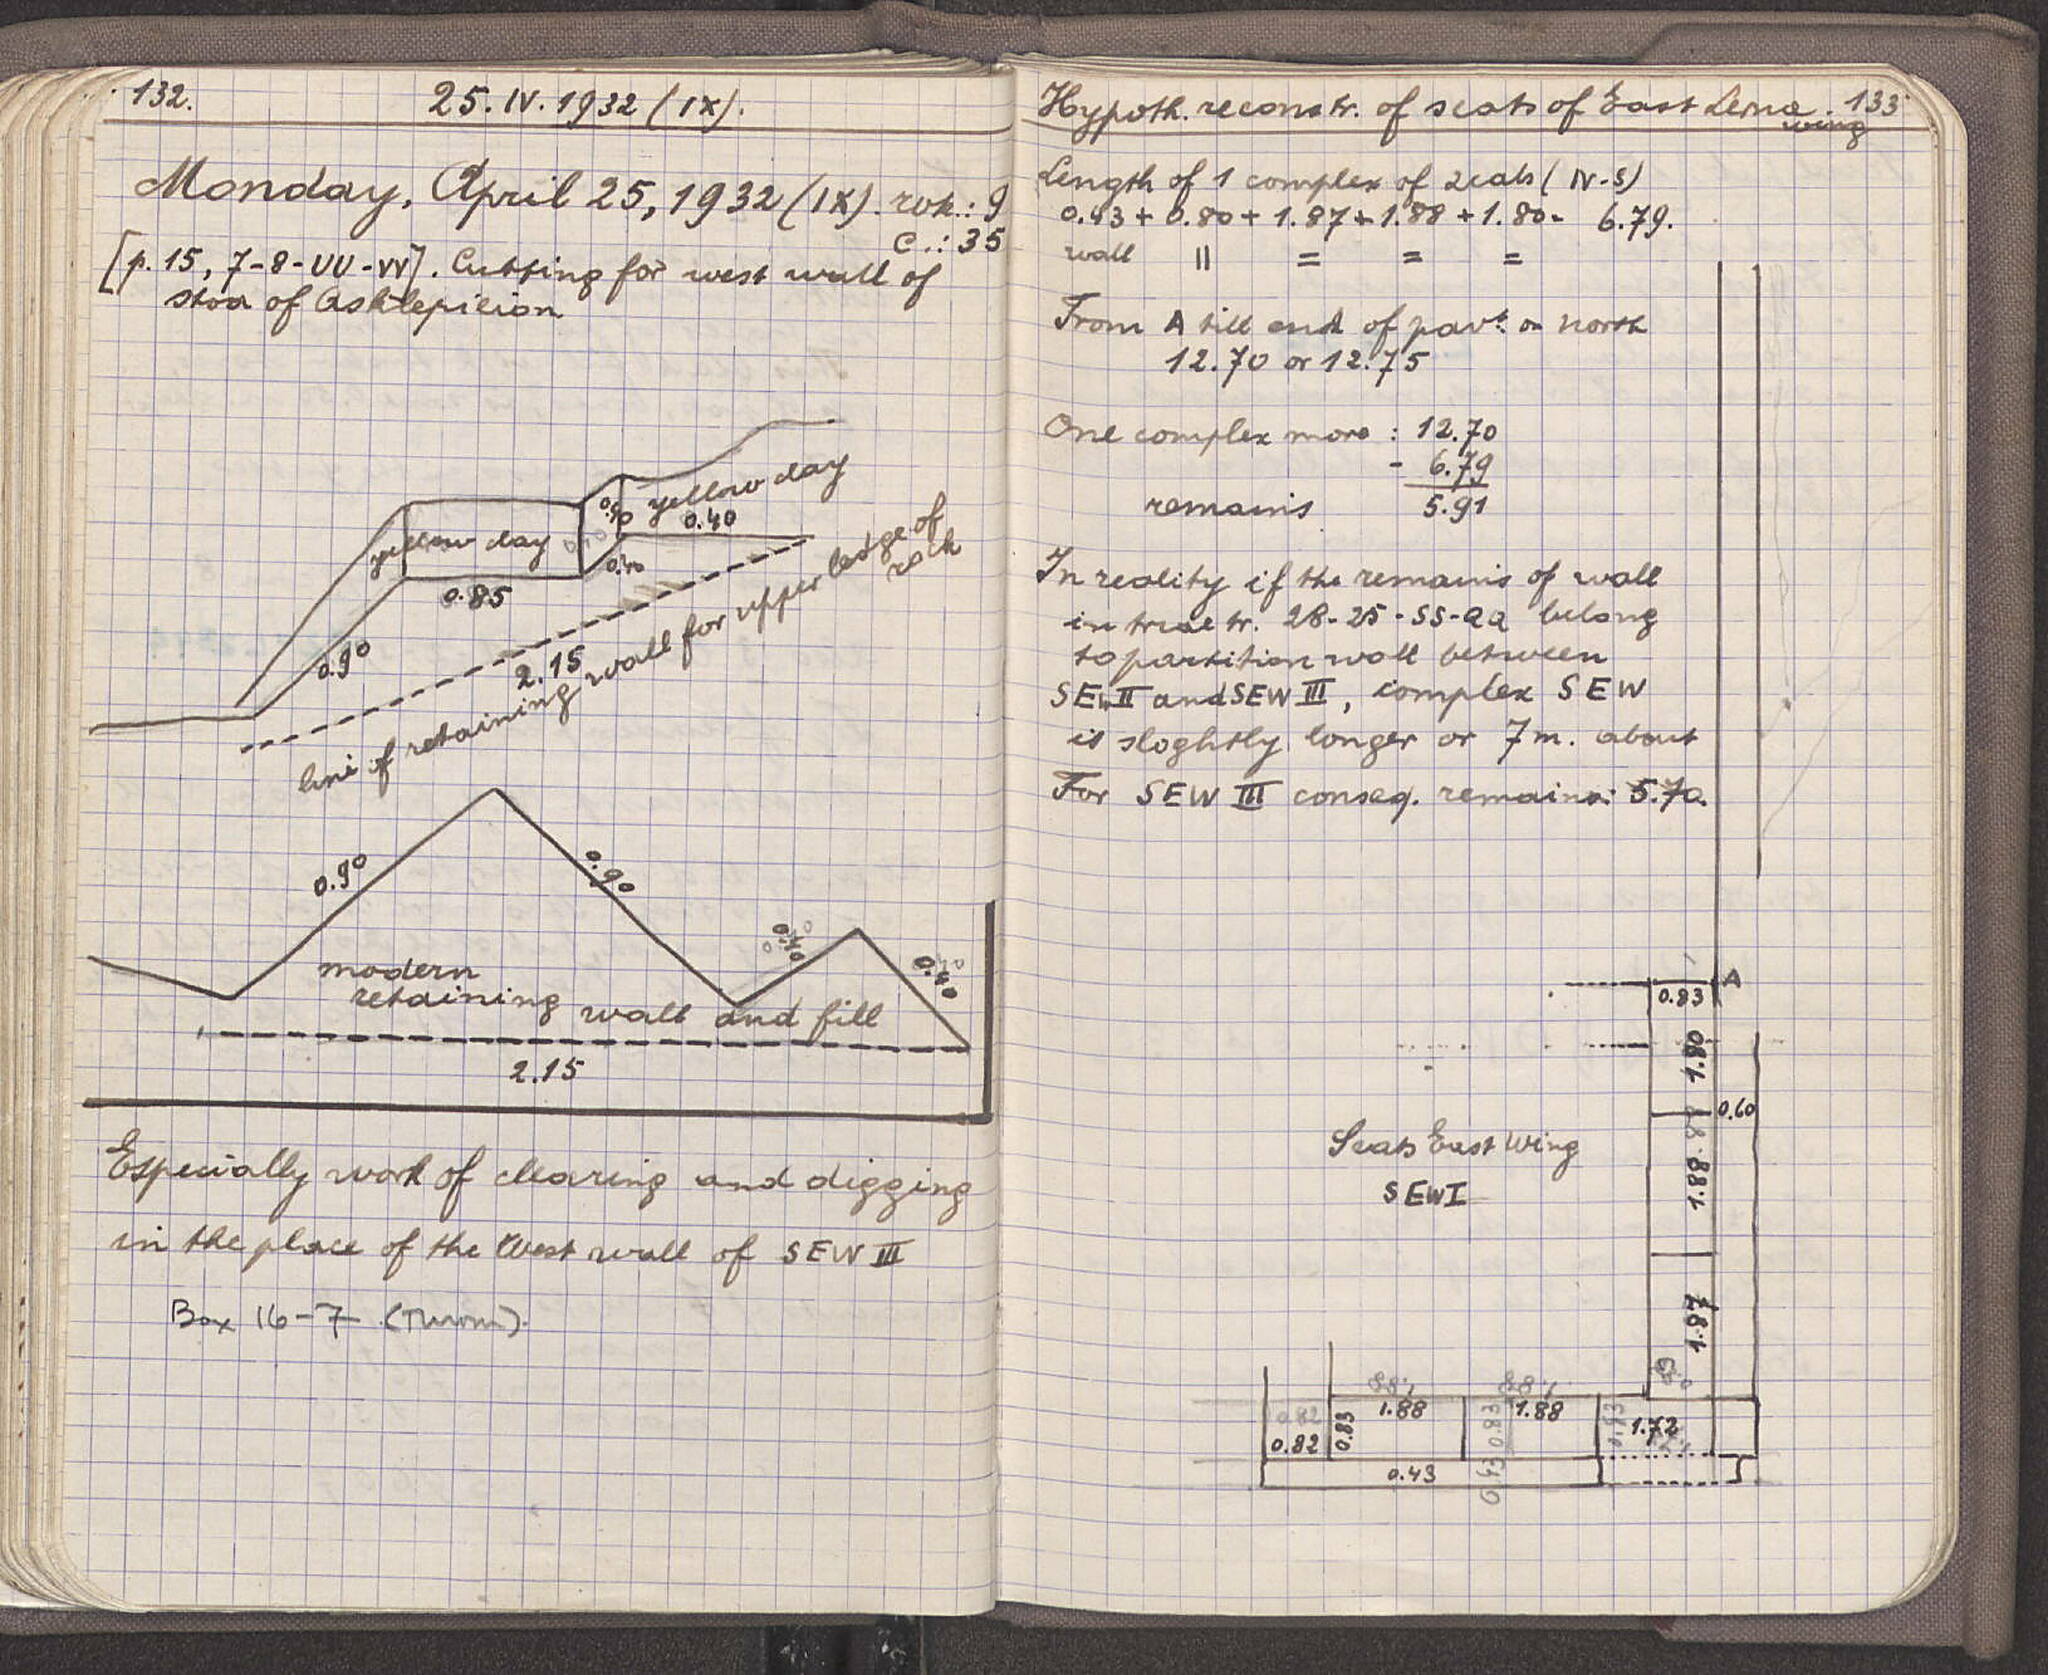 132.
25.IV.1932 (IX).
Monday, April 25, 1932 (IX). wk.: 9
C.: 35
[p. 15, 7-8-UU-VV]. Cutting for west wall of
stoa of Asklepieion
yellow clay
0.40
yellow clay
0.40
0.40
0.85
0.90
2.15
line of retaining wall for upper ledge of
rock
0.90
0.90
0.40
0.40
modern
retaining wall and fill
2.15
Especially work of clearing and digging
in the place of the West wall of SEW III
Box 16-7
Hypoth. reconstr. of seats of East Lerna. 133
wing
Length of 1 complex of seats (N-S)
0.43 + 0.80 + 1.87 + 1.88 + 1.80 = 6.79.
wall || = = =
From A till end of pavt. on north
12.70 or 12.75
One complex more : 12.70
- 6.79
remains 5.91
In reality if the remains of wall
in tr. 28-25-SS-QQ belong
to partition wall between
SEW II and SEW III, complex SEW
is sloghtly longer or 7 m. about
For SEW III conseq. remains: 5.70.
A
0.83
1.80
0.60
1.88
Seats East Wing
SEWI
1.87
0.83
1.88
1.88
0.82
0.82
0.83
1.88
0.83
1.88
0.83
1.72
0.43
0.43